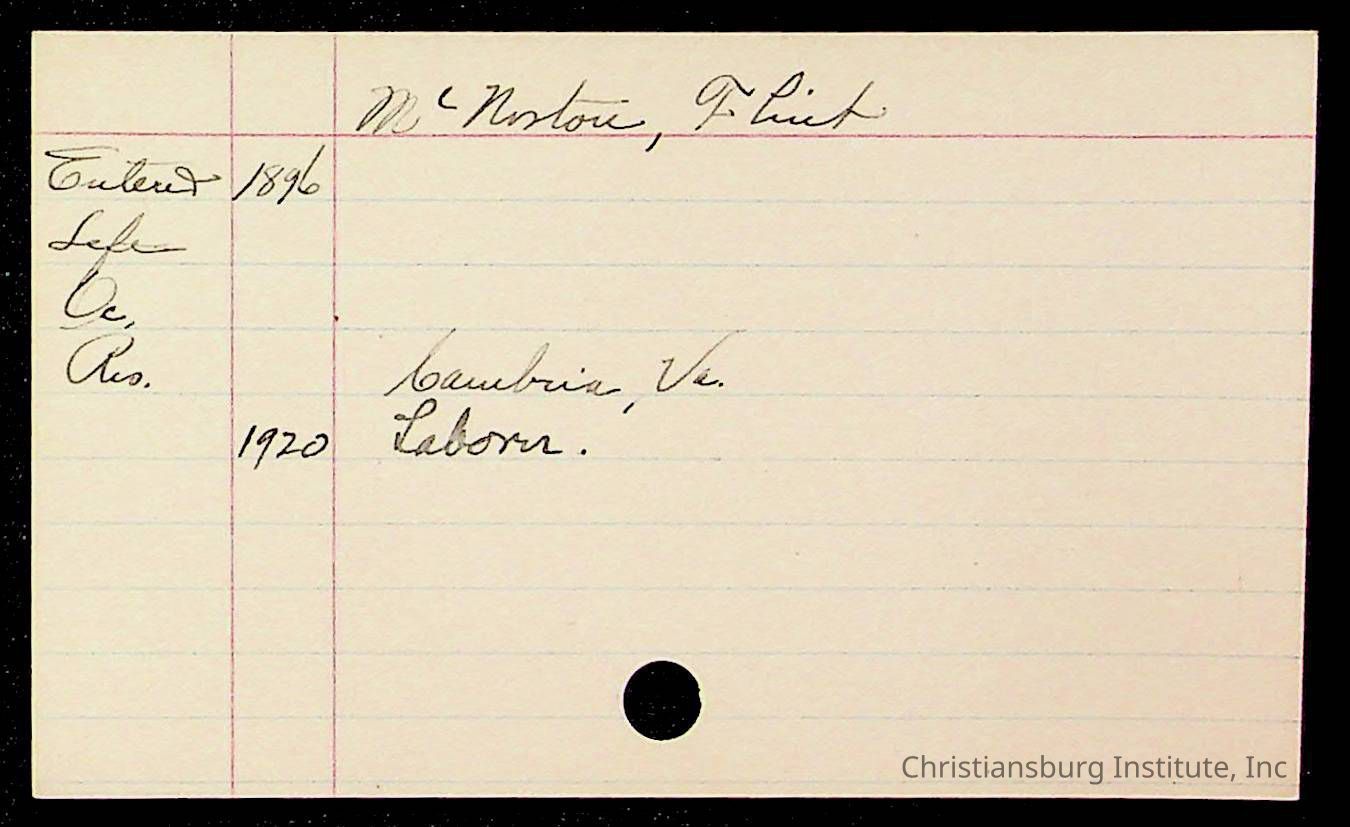 McNorton, Flint
Entered 1896
Left
Oc.
Res. Cambria, Va.
1920 Laborer.
Christiansburg Institute, Inc